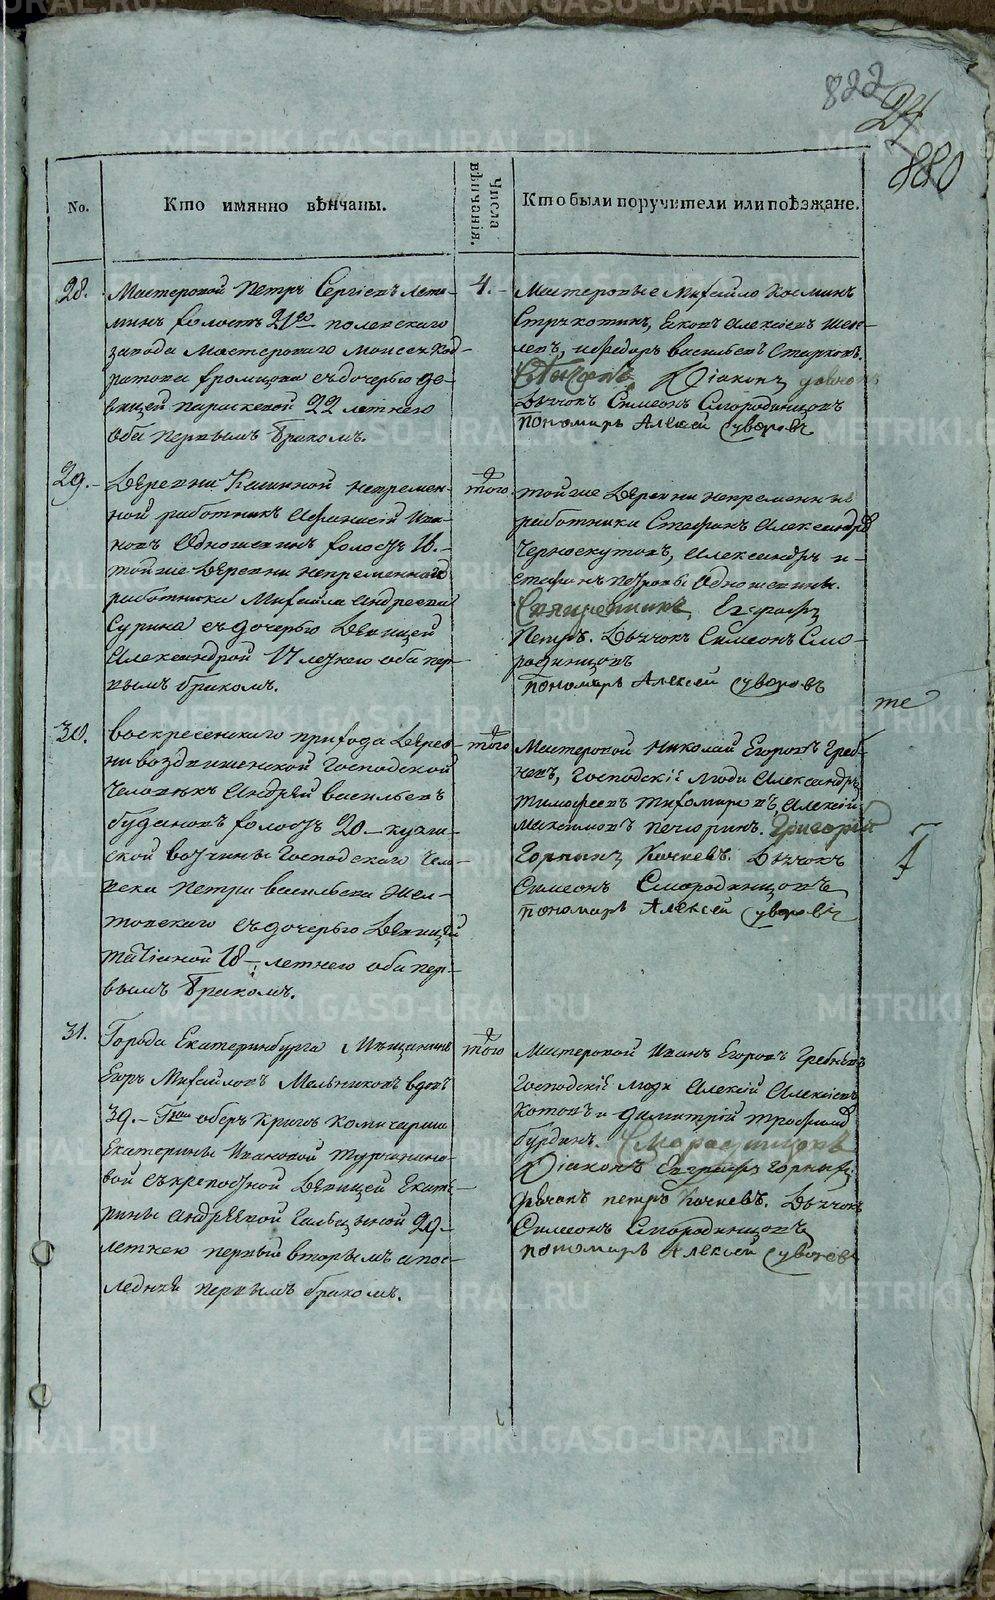 822
24
880
No.
Кто имянно вѣнчаны.
Числа вѣнчанія.
Кто были поручители или поѣзжане.
28.
Мастеровой Петръ Сергіевъ
холостъ 21го полевскаго
завода Мастероваго Моисея Код-
ратова съ дочерью де-
вицей Параскевой 22 летнего
оба первымъ бракомъ.
4.
Мастеровые Михайло Косминъ
Яковъ Алексіевъ
и Федоръ Васильевъ Старковъ.
Діаконъ
Дьячокъ Симеонъ Смородинцовъ
пономарь Алексей Суворовъ
29.
Деревни Косинной непремен-
ной работникъ Афанасій Ива-
новъ Одношевинъ холостъ 18.
той же деревни непременного
работника Михайла Андреева
Сурина съ дочерью Девицей
Александрой 17 летнего оба пер-
вымъ бракомъ.
того
той же Деревни непременные
работники Стефанъ Александръ
Черноскутовъ, Александръ и
Стефанъ Петровы Одношевины.
Священникъ Евграфъ
Петръ. Дьячокъ Симеонъ Смо-
родинцовъ
пономарь Алексей Суворовъ
30.
Воскресенскаго прихода Дерев-
ни воздвиженской Господской
Человекъ Андрей Васильевъ
Будановъ холостъ 20
ской вотчины Господскаго Чело-
века Петра Васильева Жел-
товскаго съ дочерью Девицей
Татіаной 18 летнего оба пер-
вымъ бракомъ.
того
те
Мастеровой Николай Егоровъ Греб-
невъ, Господскіе люди Александръ
Тимофеевъ Тихомировъ, Алексій
Максимовъ Печоринъ. Григорій
Горныхъ Кочневъ. Дьячокъ
Симеонъ Смородинцовъ
пономарь Алексей Суворовъ
31.
Города Екатеринбурга Мѣщанинъ
Егоръ Михайловъ Мельниковъ вдовъ
39. Гжи оберъ Кригсъ Комисарши
Екатерины Ивановой Турчанино-
вой съ крепостной Девицей Екате-
рины Андрѣевой Гальцыной 29
летнею первый вторымъ а пос-
ледняя первымъ бракомъ.
того
Мастеровой Иванъ Егоровъ Гребневъ
Господскіе люди Алексій Алексіевъ
Котовъ и Димитрій Трофимовъ
Бурдинъ. Смородинцовъ
Діаконъ Евграфъ Горныхъ,
Петръ Кочневъ. Дьячокъ
Симеонъ Смородинцовъ
пономарь Алексей Суворовъ
METRIKI.GASO-URAL.RU